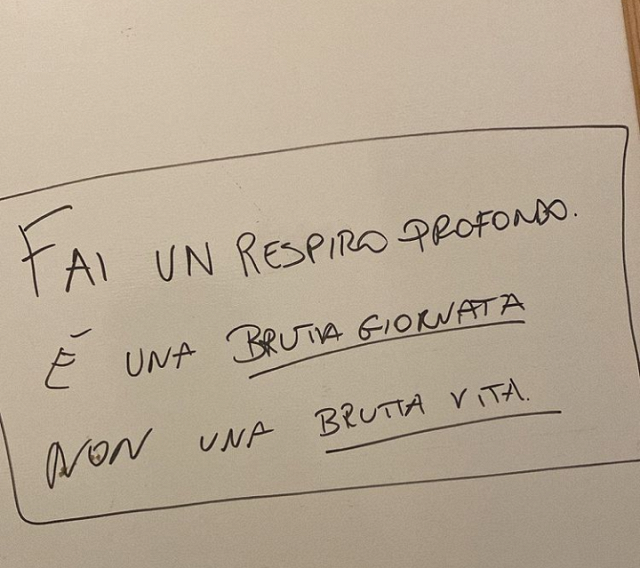 FAI UN RESPIRO PROFONDO.
É UNA BRUTTA GIORNATA
NON UNA BRUTTA VITA.